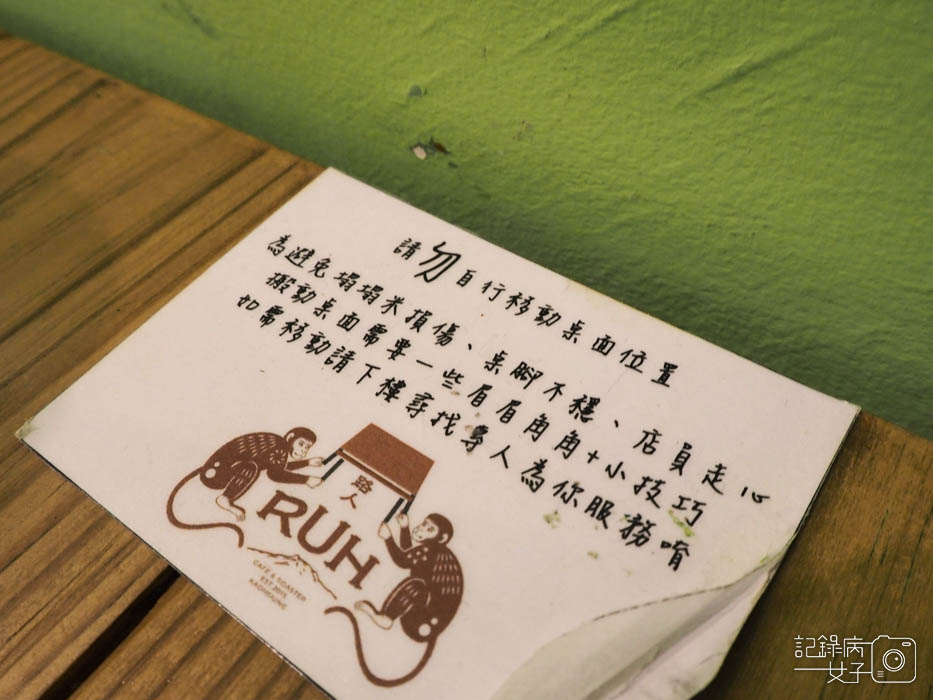 請勿自行移動桌面位置
為避免塌塌米損傷、桌腳不穩、店員走心
搬動桌面需要一些眉眉角角+小技巧
如需移動請下樓尋找專人為你服務唷
路人
RUH
CAFE & ROASTER
EST.2015
KAOHSIUNG
記錄病
女子